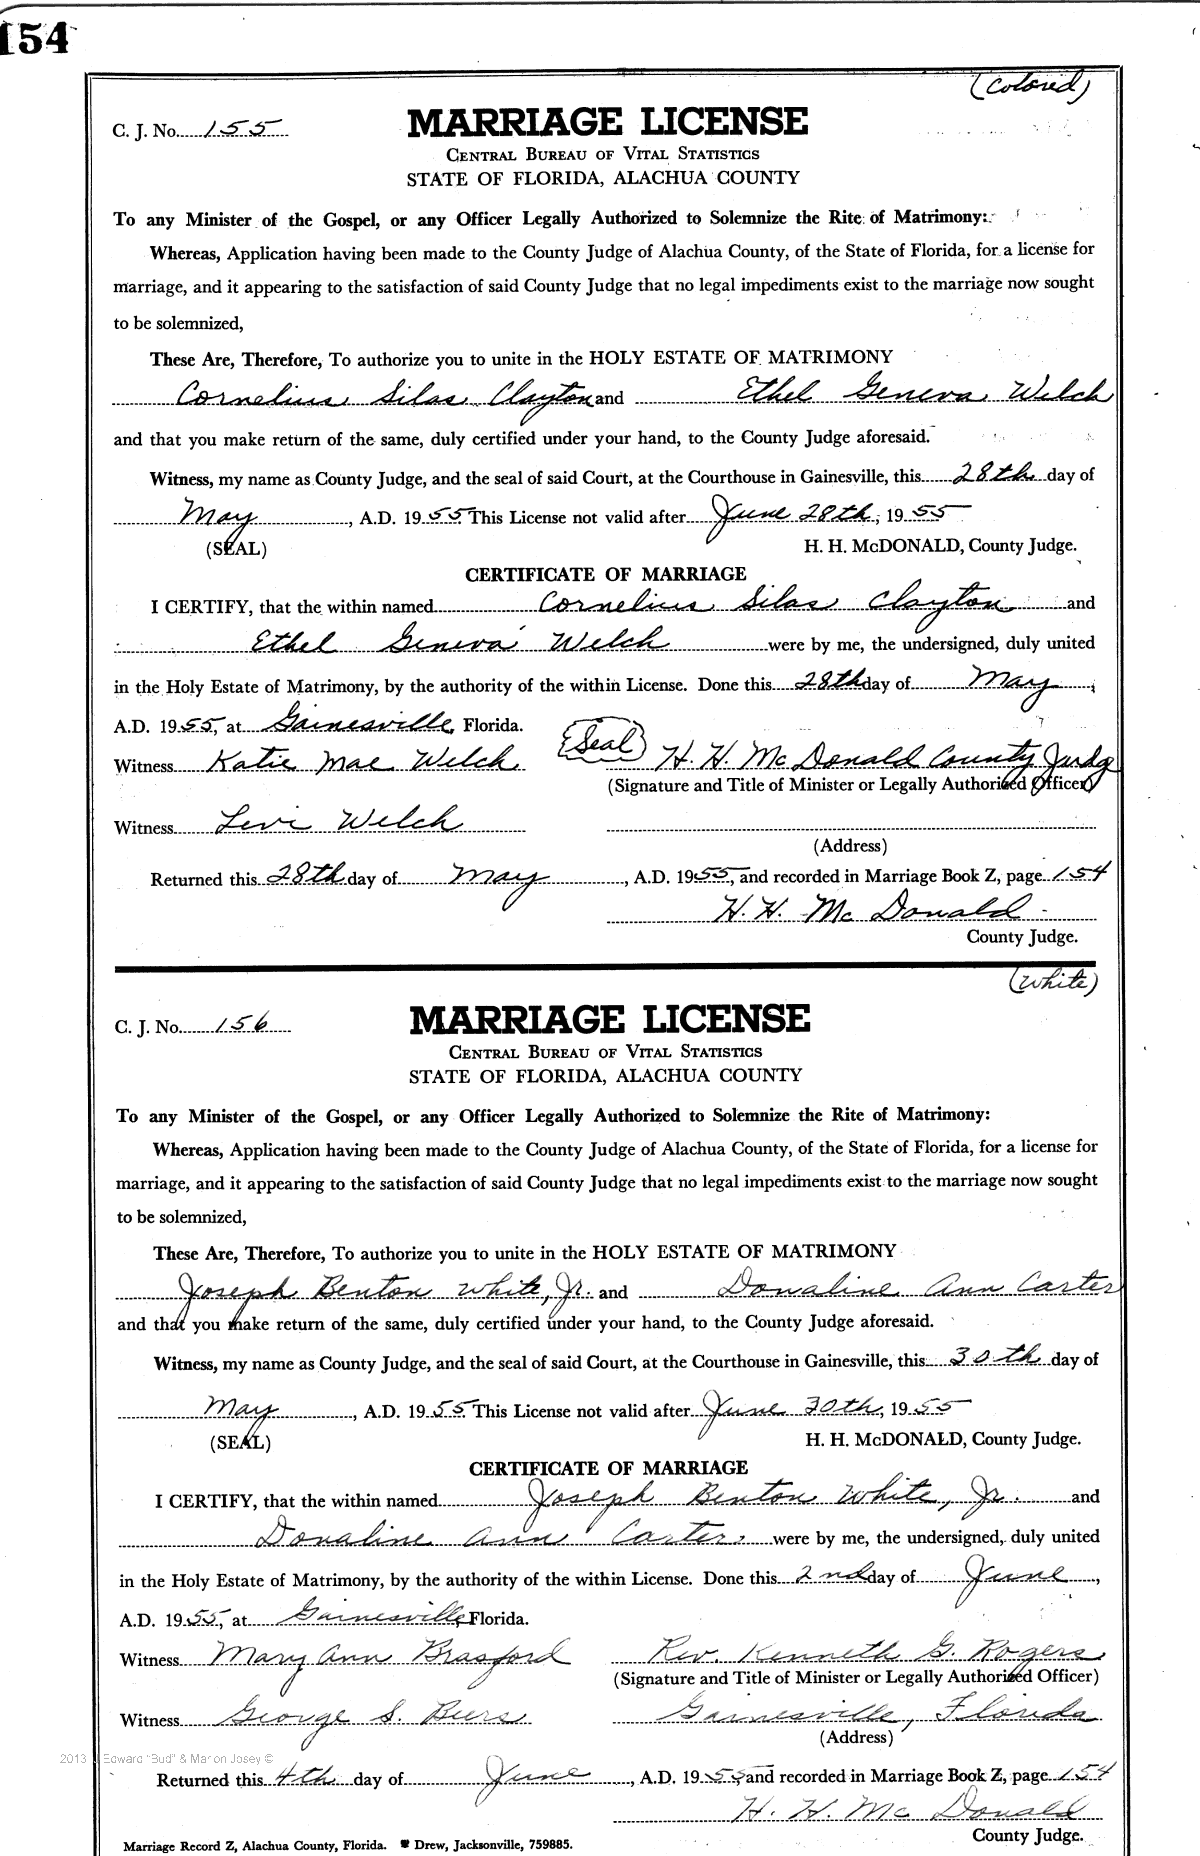 154
(Colored)
C. J. No. 155
MARRIAGE LICENSE
CENTRAL BUREAU OF VITAL STATISTICS
STATE OF FLORIDA, ALACHUA COUNTY
To any Minister of the Gospel, or any Officer Legally Authorized to Solemnize the Rite of Matrimony:
Whereas, Application having been made to the County Judge of Alachua County, of the State of Florida, for a license for
marriage, and it appearing to the satisfaction of said County Judge that no legal impediments exist to the marriage now sought
to be solemnized,
These Are, Therefore, To authorize you to unite in the HOLY ESTATE OF MATRIMONY
Cornelius Silas Clayton and Ethel Geneva Welch
and that you make return of the same, duly certified under your hand, to the County Judge aforesaid.
Witness, my name as County Judge, and the seal of said Court, at the Courthouse in Gainesville, this 28th day of
May, A.D. 1955 This License not valid after June 28th, 1955
(SEAL) H. H. McDONALD, County Judge.
CERTIFICATE OF MARRIAGE
I CERTIFY, that the within named Cornelius Silas Clayton and
Ethel Geneva Welch were by me, the undersigned, duly united
in the Holy Estate of Matrimony, by the authority of the within License. Done this 28th day of May,
A.D. 1955, at Gainesville, Florida.
Witness Katie Mae Welch (Seal) H. H. McDonald County Judge
(Signature and Title of Minister or Legally Authorized Officer)
Witness Levi Welch
(Address)
Returned this 28th day of May, A.D. 1955, and recorded in Marriage Book Z, page 154
H. H. McDonald
County Judge.
(White)
C. J. No. 156
MARRIAGE LICENSE
CENTRAL BUREAU OF VITAL STATISTICS
STATE OF FLORIDA, ALACHUA COUNTY
To any Minister of the Gospel, or any Officer Legally Authorized to Solemnize the Rite of Matrimony:
Whereas, Application having been made to the County Judge of Alachua County, of the State of Florida, for a license for
marriage, and it appearing to the satisfaction of said County Judge that no legal impediments exist to the marriage now sought
to be solemnized,
These Are, Therefore, To authorize you to unite in the HOLY ESTATE OF MATRIMONY
Joseph Benton White, Jr. and Donaline Ann Carter
and that you make return of the same, duly certified under your hand, to the County Judge aforesaid.
Witness, my name as County Judge, and the seal of said Court, at the Courthouse in Gainesville, this 30th day of
May, A.D. 1955 This License not valid after June 30th, 1955
(SEAL) H. H. McDONALD, County Judge.
CERTIFICATE OF MARRIAGE
I CERTIFY, that the within named Joseph Benton White, Jr. and
Donaline Ann Carter were by me, the undersigned, duly united
in the Holy Estate of Matrimony, by the authority of the within License. Done this 2nd day of June,
A.D. 1955, at Gainesville, Florida.
Witness Mary Ann Brasford Rev. Kenneth G. Rogers
(Signature and Title of Minister or Legally Authorized Officer)
Witness George S. Beers Gainesville, Florida
(Address)
2013 J Edward "Bud" & Marion Josey ©
Returned this 4th day of June, A.D. 1955, and recorded in Marriage Book Z, page 154
H. H. McDonald
County Judge.
Marriage Record Z, Alachua County, Florida. Drew, Jacksonville, 759885.